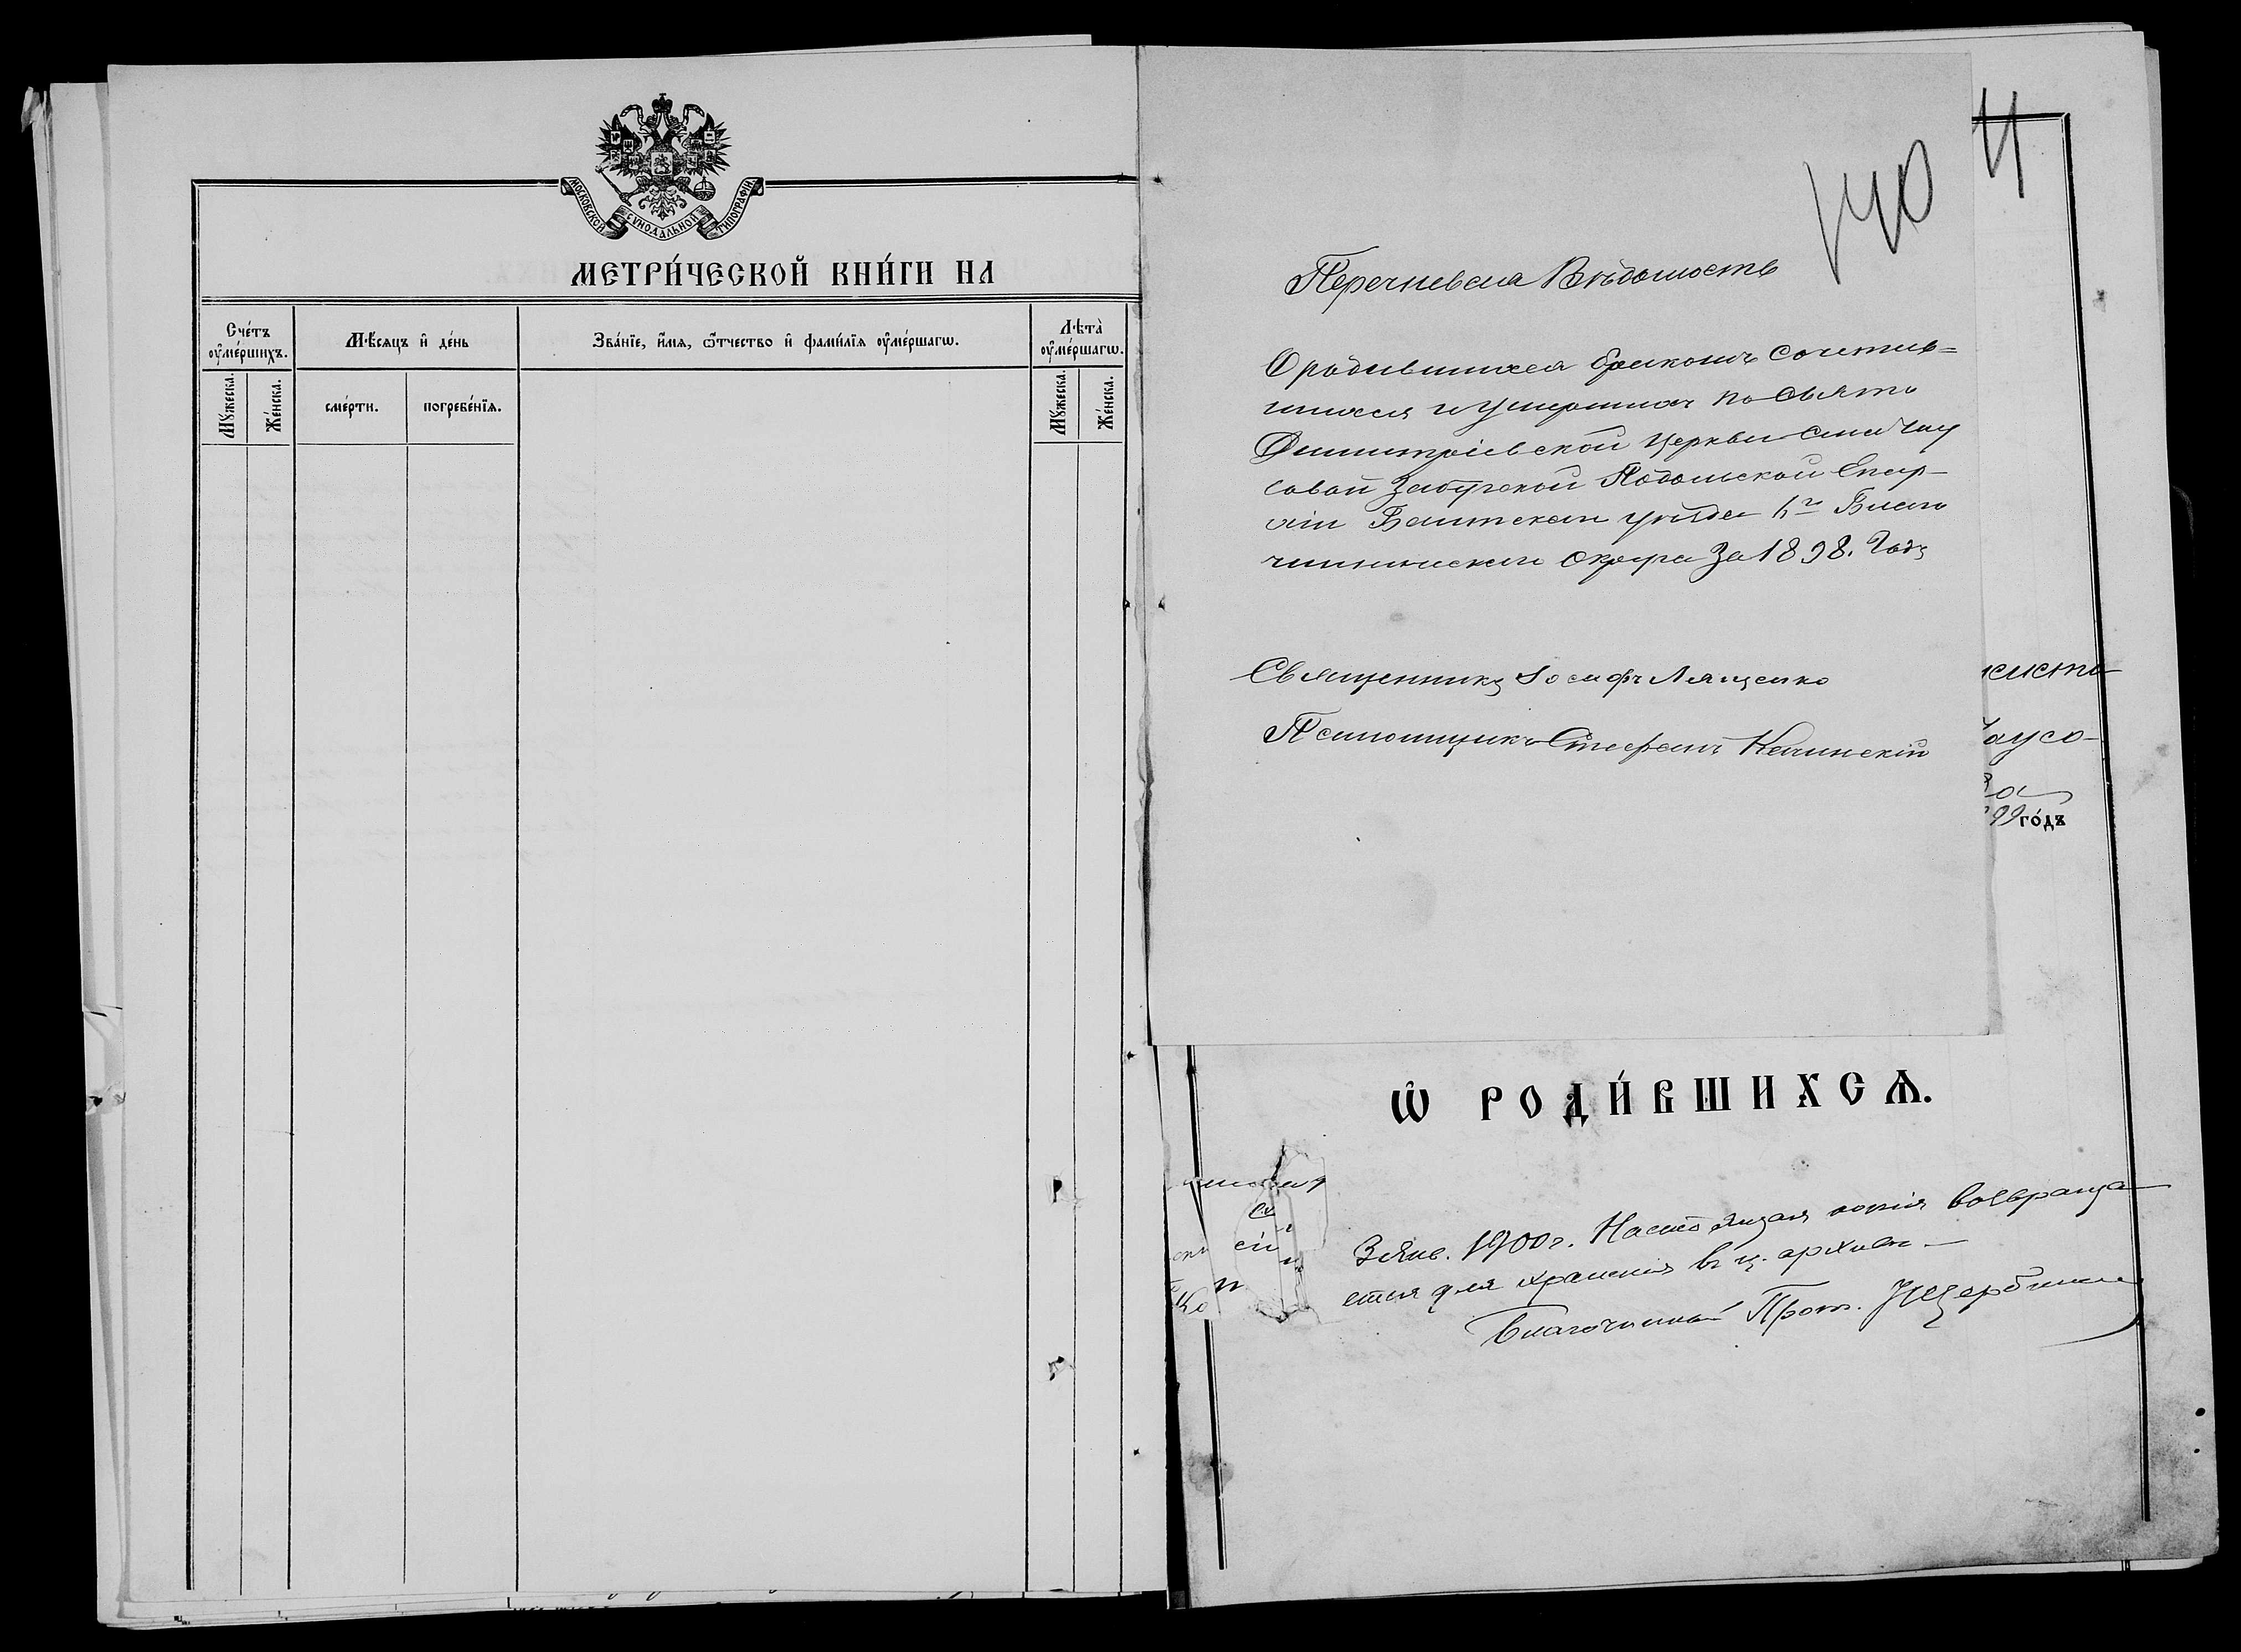 МОСКОВСКОЙ СѴНОДАЛЬНОЙ ТИПОГРАФІИ
МЕТРИ́ЧЕСКОЙ КНИ́ГИ НА
Сче́тъ ᲂу҆ме́ршихъ.
Мꙋ́жеска.
Же́нска.
Мѣ́сяцъ и҆ де́нь
сме́рти.
погребе́нїѧ.
Зва́нїе, и҆́мѧ, ѻ҆́тчество и҆ фамі́лїѧ ᲂу҆ме́ршагѡ.
Лѣ́та ᲂу҆ме́ршагѡ.
Мꙋ́жеска.
Же́нска.
140
4
Перечневая Вѣдомость
О родившихся бракомъ сочетав=
шихся и умершихъ по Свято
Димитріевской церкви села Чау
совой Забугской Подольской Епар-
хіи Балтскаго уѣзда 6го Благо
чинническаго округа За 1898. Годъ
Священникъ Іосифъ Лященко
Псаломщикъ Стефанъ
Чаусо-
99 го́дъ
Ѡ҆ РОДИ́ВШИХСѦ.
3 Янв. 1900 г. Настоящая копія возвраща
ется для храненія въ ц. архивѣ.—
Благочинный Прот.